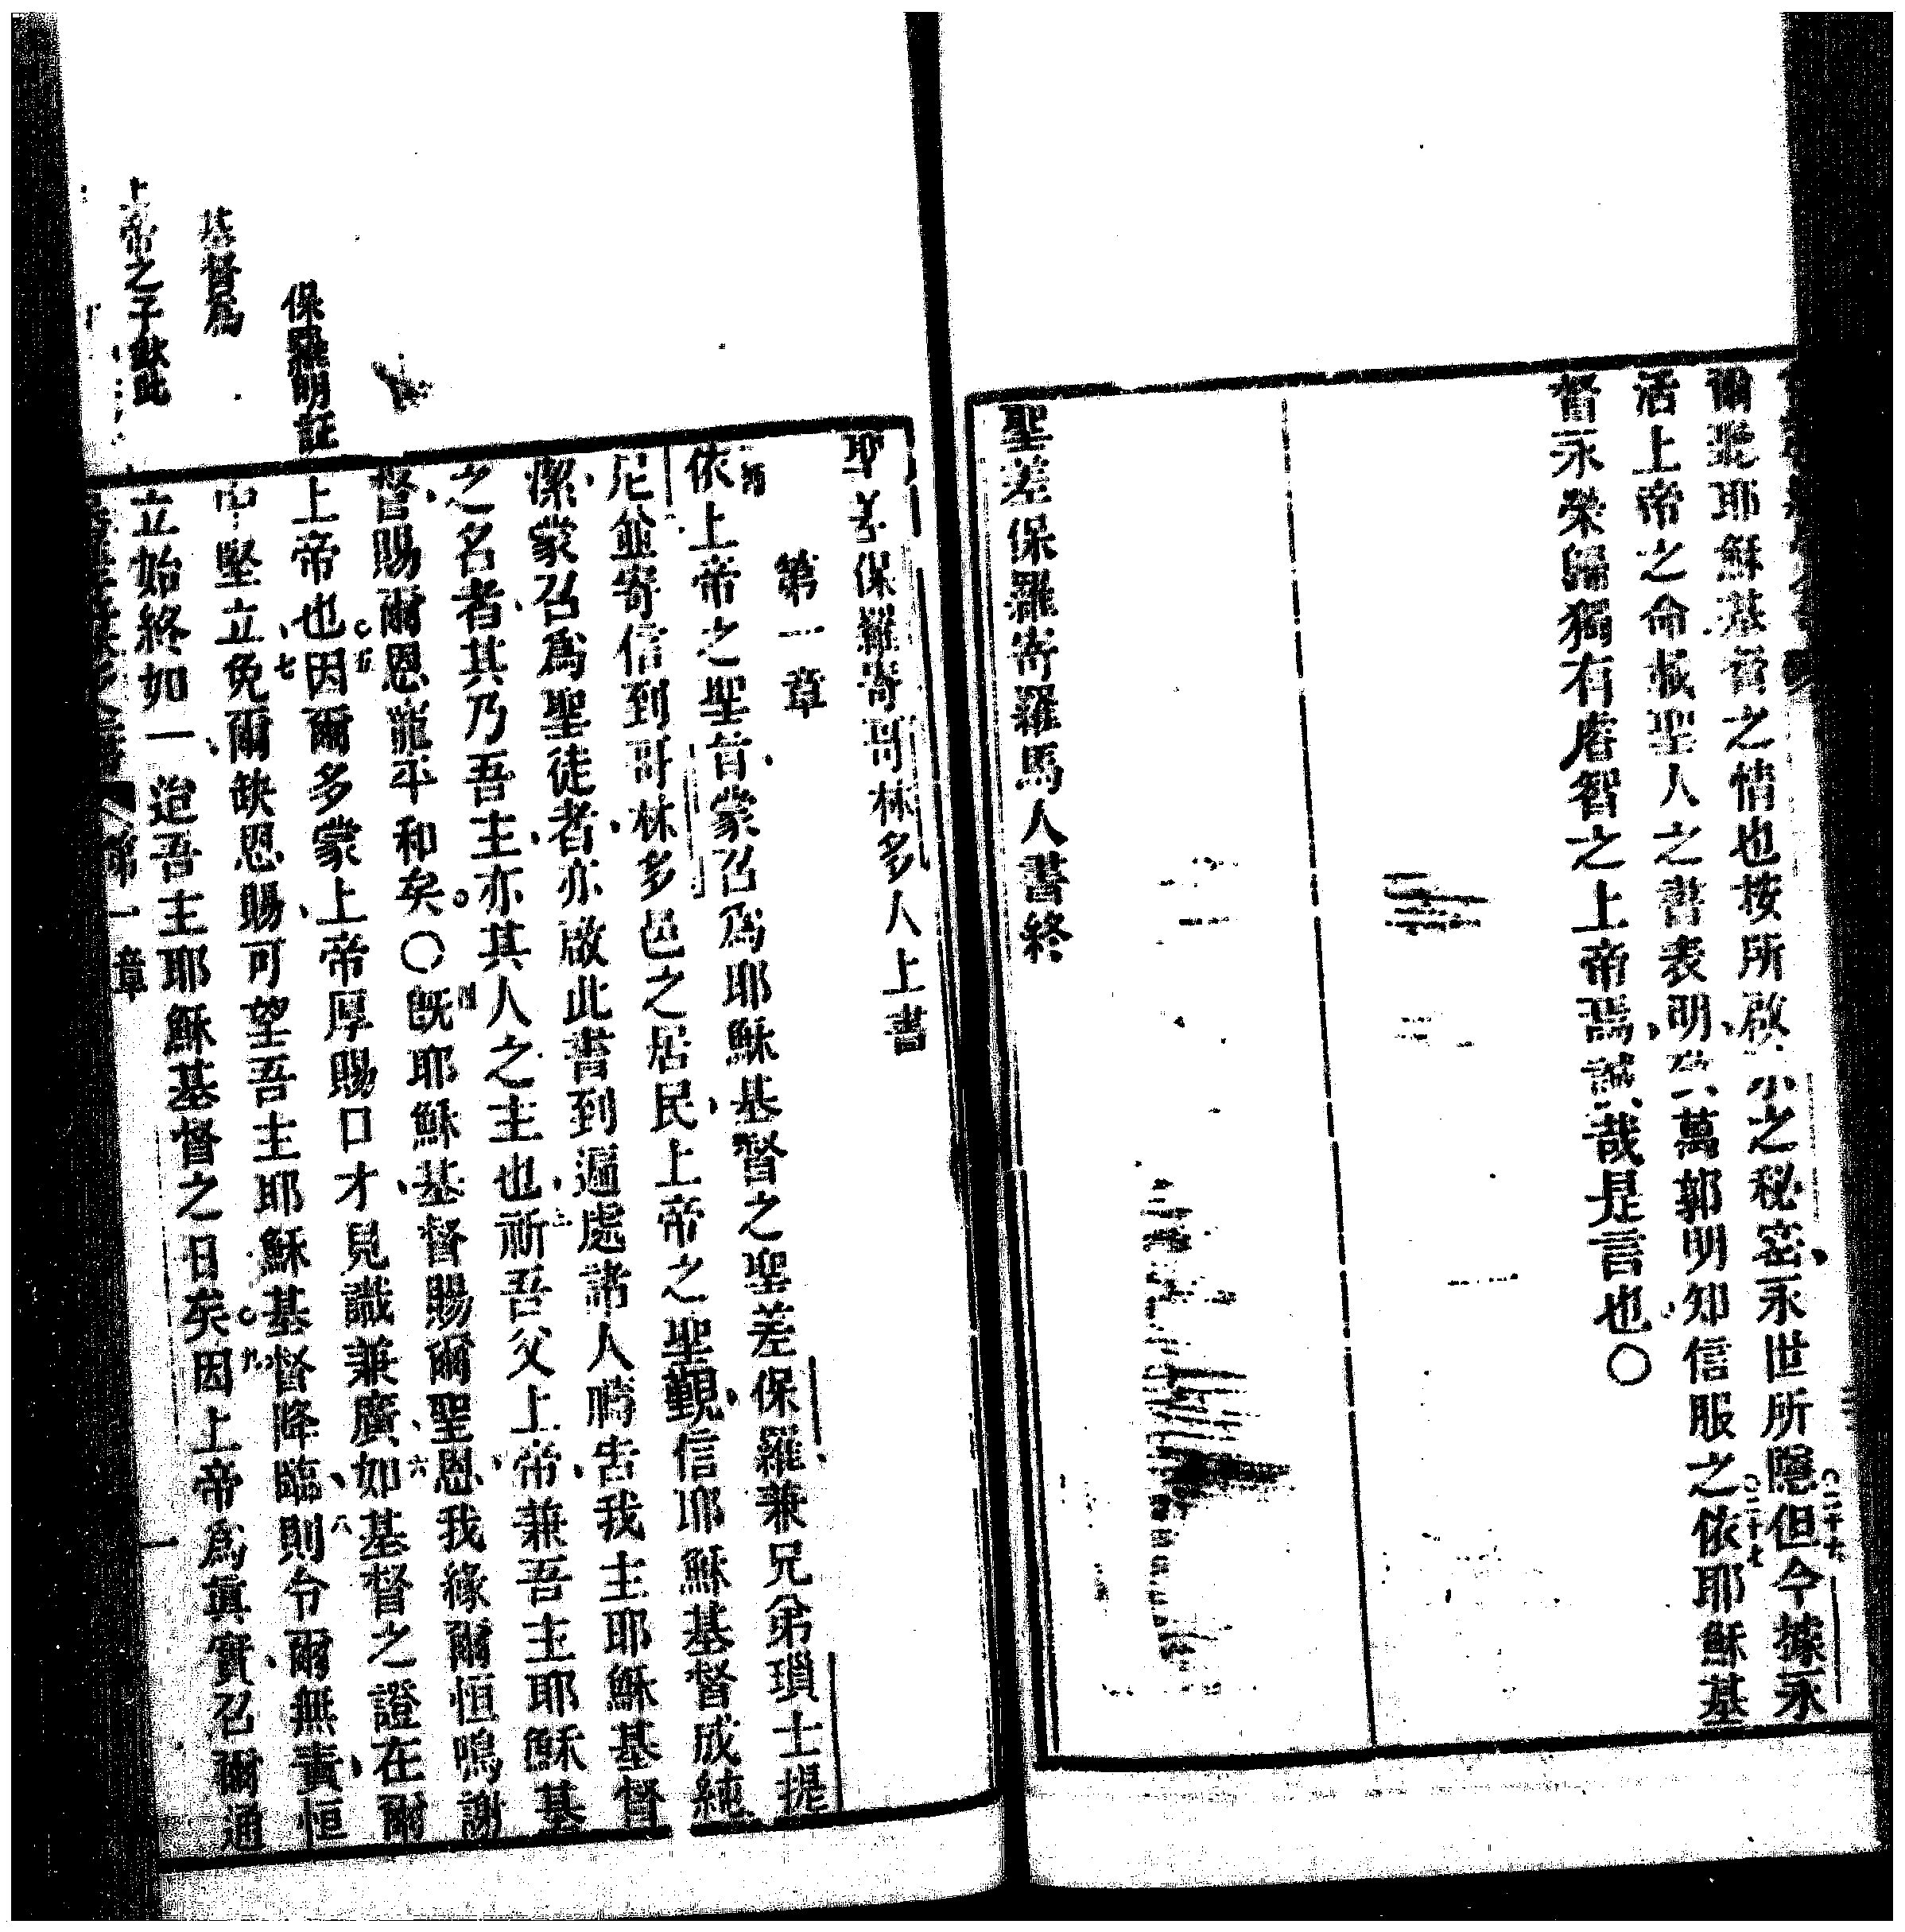 爾聽耶穌基督之情也按所啟示之秘密永世所隱但今據永
活上帝之命被聖人之書表明 萬郭明知信服之依耶穌基
督永榮歸獨有睿智之上帝焉誠哉是言也〇
聖差保羅寄羅馬人書終
聖差保羅寄哥林多人上書
第一章
依上帝之聖旨蒙召爲耶穌基督之聖差保羅兼兄弟瑣士提
尼並寄信到哥林多邑之居民上帝之聖覲信耶穌基督成純
潔蒙召爲聖徒者亦啟此書到遍處諸人禱告我主耶穌基督
之名者其乃吾主亦其人之主也祈吾父上帝兼吾主耶穌基
督賜爾恩寵平和矣〇旣耶穌基督賜爾聖恩我緣爾恒鳴謝
上帝也因爾多蒙上帝厚賜口才見識兼廣如基督之證在爾
中堅立免爾缺恩賜可望吾主耶穌基督降臨則令爾無責恒
立始終如一迨吾主耶穌基督之日矣因上帝爲眞實召爾通
保羅明証
基督爲
上帝之子獻此
第一章
一